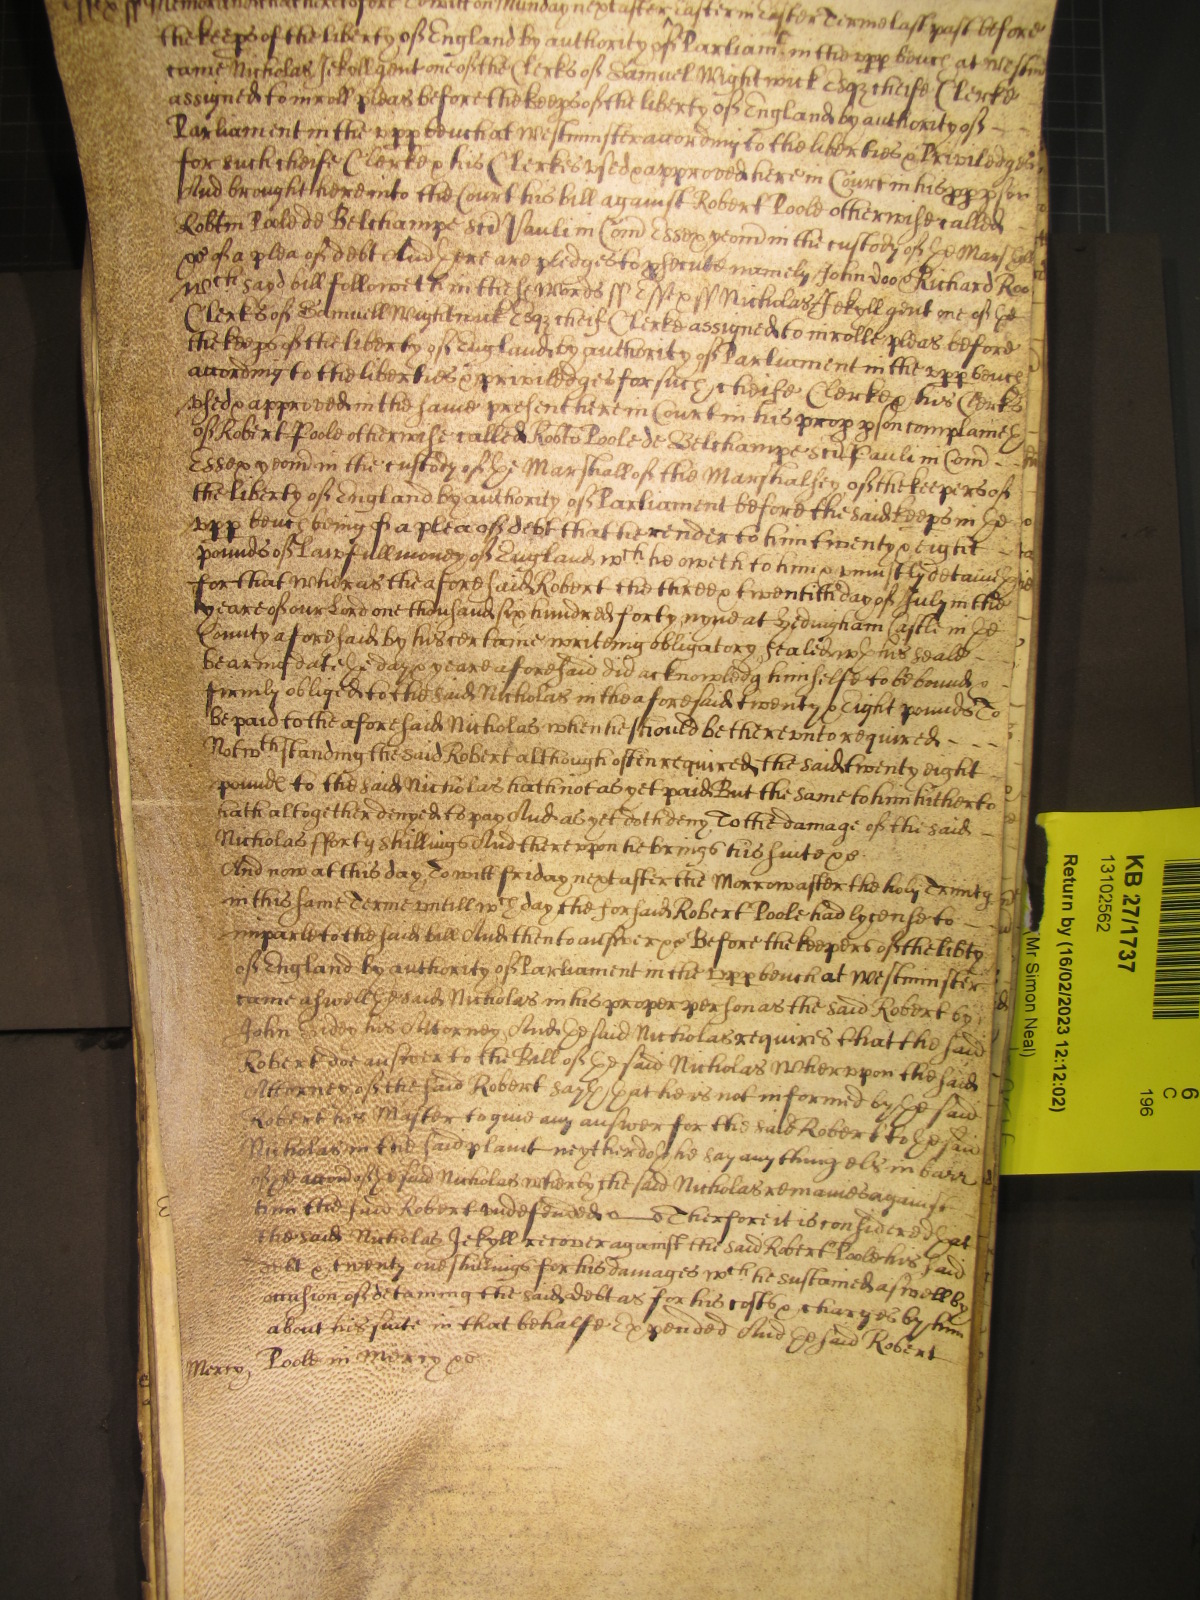 Essex ss Memorand that heretofore to witt on Munday next after Easter in Easter Terme last past before
the keeps of the liberty of England by authority of Parliamt in the upp bench at Westm
came Nicholas Jekyll gent one of the Clerks of Samuel Wightwick Esqz cheife Clerke
assigned to inroll pleas before the keeps of the liberty of England by authority of
Parliament in the upp bench at Westminster according to the liberties & Priviledges
for such cheife Clerke & his Clerkes used & approved here in Court in his ppp pson
And brought here into the Court his bill against Robert Poole otherwise called
Robtm Poole de Belchampe Sci Pauli in Com Essex yeom in the custody of ye Marshall
&c of a plea of debt And there are pledges to psecute namely John Doo & Richard Roo
wch sayd bill followeth in these words ss Essex ss Nicholas Jekyll gent one of ye
Clerks of Samuell Wightwick Esqz cheif Clerke assigned to inrolle pleas before
the keeps of the liberty of England by authority of Parliament in the upp bench
according to the liberties & priviledges for such cheife Clerke & his Clerks
used & approved in the same present here in Court in his propp pson complaineth
of Robert Poole otherwise called Robto Poole de Belchampe Sci Pauli in Com
Essex yeom in the custody of ye Marshall of the Marshalsey of the keepers of
the liberty of England by authority of Parliament before the said keeps in ye
upp bench being of a plea of debt that he render to him twenty & eight
pounds of Lawfull money of England wch he oweth to him & uniustly detaineth
for that wheras the aforesaid Robert the three & twentith day of July in the
yeare of our Lord one thousand six hundred forty nyne at Hedingham Castle in ye
County aforesaid by his certaine writeing obligatory sealed wth his seale
bearing date ye day & yeare aforesaid did acknowledg himselfe to be bound &
firmly obliged to the said Nicholas in the aforesaid twenty & Eight pounds To
be paid to the aforesaid Nicholas when he should be therewnto required
Notwthstanding the said Robert although often required the said twenty eight
pounds to the said Nicholas hath not as yet paid But the same to him hitherto
hath altogether denyed to pay And as yet doth deny To the damage of the said
Nicholas fforty shillings And therevpon he brings this suite &c
And now at this day To witt friday next after the Morrow after the holy Trinity
in this same Terme untill wch day the forsaid Robert Poole had lycense to
imparle to the said bill And then to answer &c Before the keepers of the libty
of England by authority of Parliament in the upp bench at Westminster
came aswell ye said Nicholas in his proper person as the said Robert by
John his Attorney And ye said Nicholas requires that the said
Robert doe answer to the Bill of ye said Nicholas Wherupon the said
Attorney of the said Robert sayth that he is not informed by ye said
Robert his Master to give any answer for the said Robert to ye said
Nicholas in the said plaint neyther doth he say any thing els in barr
of ye accon of ye said Nicholas wherby the said Nicholas remaines against
him the said Robert undefended Therfore it is considered that
the said Nicholas Jekyll recover against the said Robert Poole his said
debt & twenty one shillings for his damages wch he sustained aswell by
occasion of detaining the said debt as for his costs & charges by him
about his suite in that behalfe Expended And ye said Robert
Mercy, Poole in mercy &c
KB 27/1737
13102562
Return by (16/02/2023 12:12:02)
Mr Simon Neal)
6
C
196